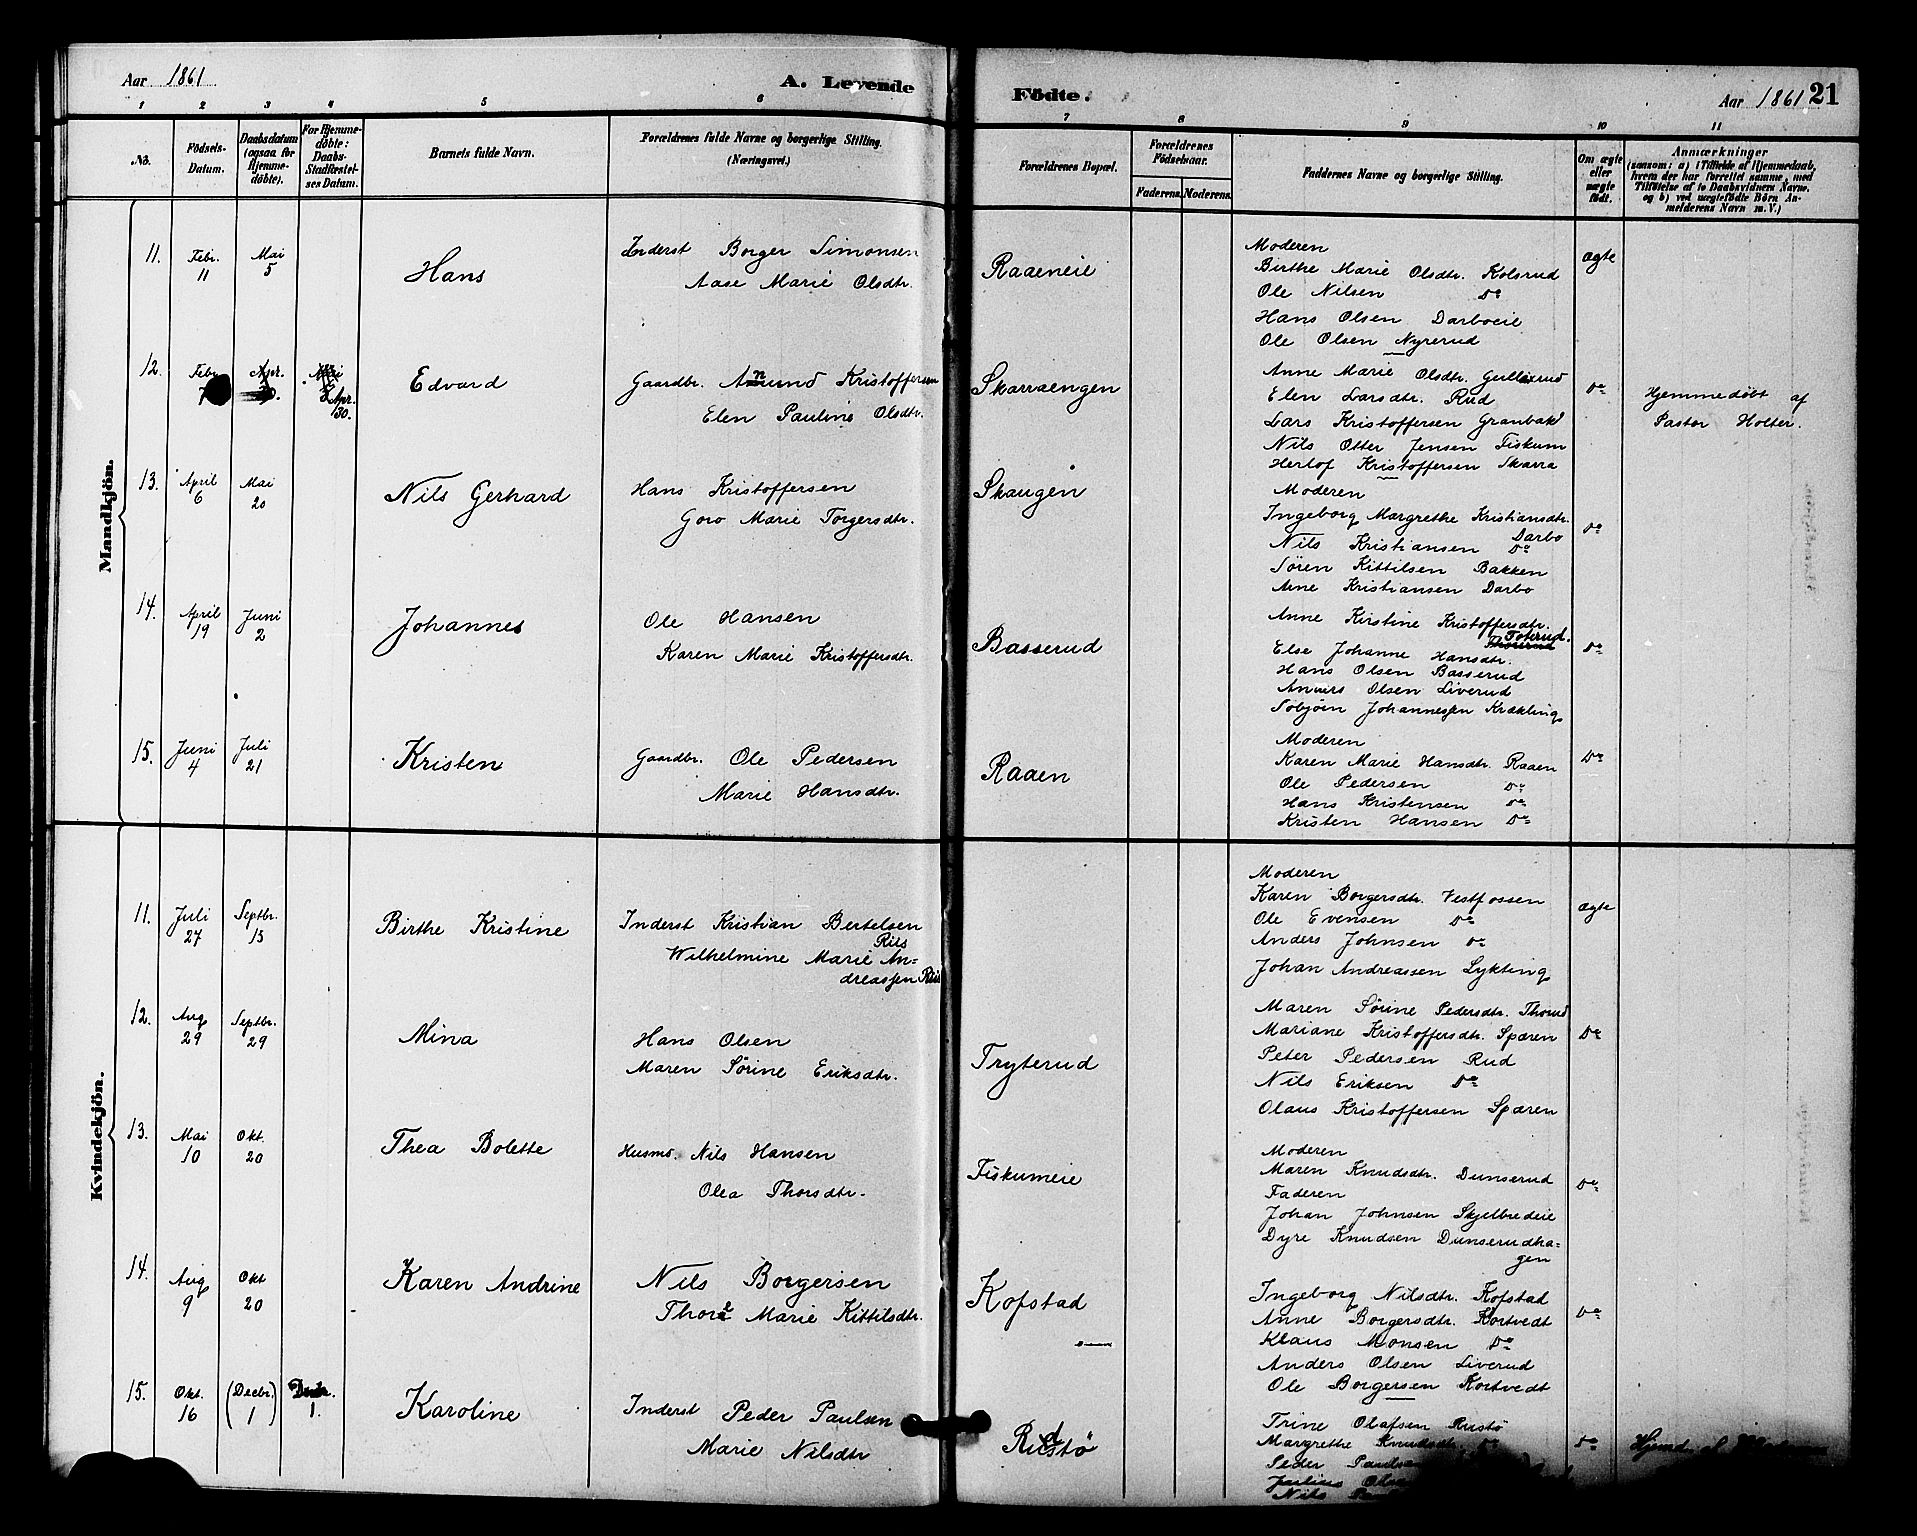 Aar 1861
A. Levende
Födte.
Aar 1861 21
1 2 3 4 5 6 7 8 9 10 11
No.
Födsels-
Datum.
Daabsdatum
(ogsaa for
Hjemme-
döbte).
For Hjemme-
döbte:
Daabs-
Stadfæstel-
ses Datum.
Barnets fulde Navn.
Forældrenes fulde Navne og borgerlige Stilling.
(Næringsvei.)
Forældrenes Bopæl.
Forældrenes
Födselsaar.
Faderens. Moderens.
Faddernes Navne og borgerlige Stilling.
Om ægte
eller
uægte
födt.
Anmærkninger
(saasom: a) i Tilfælde af Hjemmedaab,
hvem der har forrettet samme, med
Tilföielse af to Daabsvidners Navne,
og b) ved uægtefödte Börn An-
melderens Navn m. V.)
Mandkjön.
11. Febr. 11 Mai 5 Hans
Inderst Borger Simonsen
Aase Marie Olsdtr.
Raaeneie
Moderen
Birthe Marie Olsdtr. Kolsrud
Ole Nilsen Do
Hans Olsen Darboeie
Ole Olsen Nyrerud
ægte
12. Febr. 7 Apr. 30. Edvard
Apr. 30.
Gaardbr. Amund Kristoffersen
Elen Pauline Olsdtr.
Skarraengen
Anne Marie Olsdtr. Gullixrud
Elen Larsdtr. Rud
Lars Kristoffersen Granbak
Nils Otter Jensen Fiskum
Hertof Kristoffersen Skarra
Do
Hjemmedöbt af
Pastor Holter.
13. April 6 Mai 20 Nils Gerhard
Hans Kristoffersen
Goro Marie Torgersdtr.
Skaugen
Moderen
Ingeborg Margrethe Kristiansdtr.
Darbo
Nils Kristiansen Do
Søren Kittilsen Bakken
Arne Kristiansen Darbo
Do
14. April 19 Juni 2 Johannes
Ole Hansen
Karen Marie Kristoffersdtr.
Basserud
Anne Kirstine Kristoffersdtr.
Foterud.
Else Johanne Hansdtr.
Hans Olsen Basserud
Anders Olsen Liverud
Tobjön Johannessen Krækling
Do
15. Juni 4 Juli 21 Kristen
Gaardbr. Ole Pedersen
Marie Hansdtr.
Raaen
Moderen
Karen Marie Hansdtr. Raaen
Ole Pedersen Do
Hans Kristensen Do
Kristen Hansen Do
Do
Kvindekjön.
11. Juli 27 Septbr. 15 Birthe Kristine
Inderst Kristian Bertelsen
Riis
Wilhelmine Marie An-
dreassen Riis
Moderen
Karen Borgersdtr. Vestfossen
Ole Evensen Do
Anders Johnsen Do
Johan Andreassen Lykting
ægte
12. Aug 29 Septbr. 29 Mina
Hans Olsen
Maren Sørine Eriksdtr.
Tryterud
Maren Sørine Pedersdtr. Thorud
Mariane Kristoffersdtr. Spæren
Peter Pedersen Rud
Nils Eriksen Do
Olaus Kristoffersen Spæren
Do
13. Mai 10 Okt. 20 Thea Bolette
Husmd. Nils Hansen
Olea Thorsdtr.
Fiskumeie
Moderen
Maren Knudsdtr. Dunserud
Faderen
Johan Johnsen Skjelbredeie
Dyre Knudsen Dunserudha-
gen
Do
14. Aug 9 Okt 20 Karen Andrine
Nils Borgersen
Thore Marie Kittilsdtr.
Kofstad
Ingeborg Nilsdtr. Kofstad
Anne Borgersdtr. Kortvedt
Klaus Monsen Do
Anders Olsen Liverud
Ole Borgersen Kortvedt
Do
15. Okt. 16 (Decbr. 1) Decbr. 1. Karoline
Inderst Peder Paulsen
Marie Nilsdtr
Rudstö
Trine Olafsen Rustö
Margrethe Knudsdtr. Do
Peder Paulsen
Nils
Do